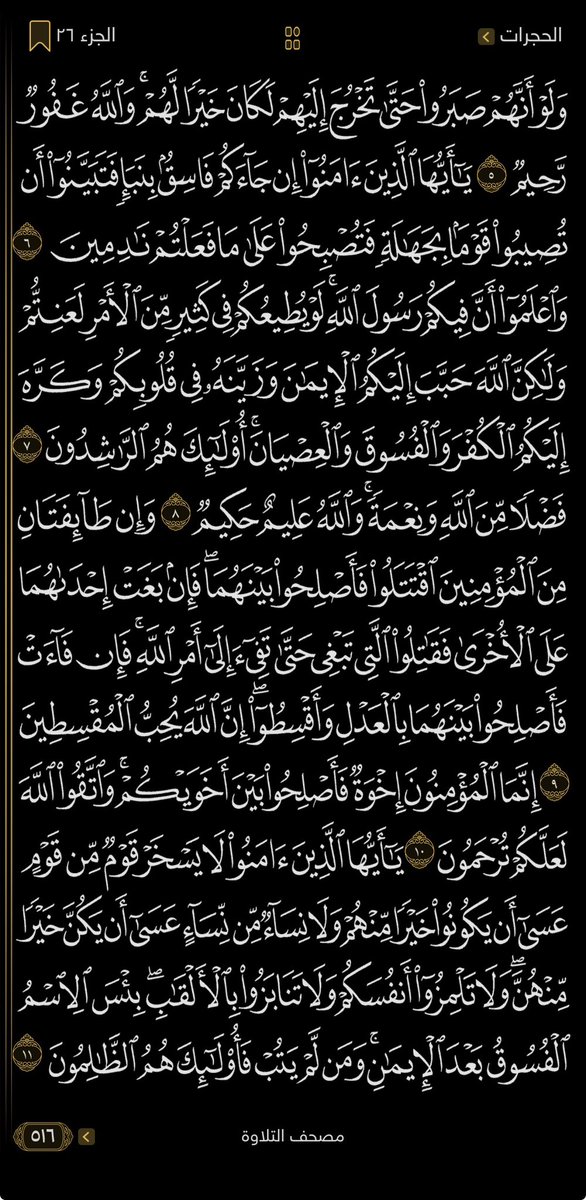 الحجرات
الجزء ٢٦
وَلَوْ أَنَّهُمْ صَبَرُوا۟ حَتَّىٰ تَخْرُجَ إِلَيْهِمْ لَكَانَ خَيْرًا لَّهُمْ ۚ وَٱللَّهُ غَفُورٌ
رَّحِيمٌ ٥ يَـٰٓأَيُّهَا ٱلَّذِينَ ءَامَنُوٓا۟ إِن جَآءَكُمْ فَاسِقٌۢ بِنَبَإٍ فَتَبَيَّنُوٓا۟ أَن
تُصِيبُوا۟ قَوْمًۢا بِجَهَـٰلَةٍ فَتُصْبِحُوا۟ عَلَىٰ مَا فَعَلْتُمْ نَـٰدِمِينَ ٦
وَٱعْلَمُوٓا۟ أَنَّ فِيكُمْ رَسُولَ ٱللَّهِ ۚ لَوْ يُطِيعُكُمْ فِى كَثِيرٍ مِّنَ ٱلْأَمْرِ لَعَنِتُّمْ
وَلَـٰكِنَّ ٱللَّهَ حَبَّبَ إِلَيْكُمُ ٱلْإِيمَـٰنَ وَزَيَّنَهُۥ فِى قُلُوبِكُمْ وَكَرَّهَ
إِلَيْكُمُ ٱلْكُفْرَ وَٱلْفُسُوقَ وَٱلْعِصْيَانَ ۚ أُو۟لَـٰٓئِكَ هُمُ ٱلرَّٰشِدُونَ ٧
فَضْلًا مِّنَ ٱللَّهِ وَنِعْمَةً ۚ وَٱللَّهُ عَلِيمٌ حَكِيمٌ ٨ وَإِن طَآئِفَتَانِ
مِنَ ٱلْمُؤْمِنِينَ ٱقْتَتَلُوا۟ فَأَصْلِحُوا۟ بَيْنَهُمَا ۖ فَإِنۢ بَغَتْ إِحْدَىٰهُمَا
عَلَى ٱلْأُخْرَىٰ فَقَـٰتِلُوا۟ ٱلَّتِى تَبْغِى حَتَّىٰ تَفِىٓءَ إِلَىٰٓ أَمْرِ ٱللَّهِ ۚ فَإِن فَآءَتْ
فَأَصْلِحُوا۟ بَيْنَهُمَا بِٱلْعَدْلِ وَأَقْسِطُوٓا۟ ۖ إِنَّ ٱللَّهَ يُحِبُّ ٱلْمُقْسِطِينَ
٩ إِنَّمَا ٱلْمُؤْمِنُونَ إِخْوَةٌ فَأَصْلِحُوا۟ بَيْنَ أَخَوَيْكُمْ ۚ وَٱتَّقُوا۟ ٱللَّهَ
لَعَلَّكُمْ تُرْحَمُونَ ١٠ يَـٰٓأَيُّهَا ٱلَّذِينَ ءَامَنُوا۟ لَا يَسْخَرْ قَوْمٌ مِّن قَوْمٍ
عَسَىٰٓ أَن يَكُونُوا۟ خَيْرًا مِّنْهُمْ وَلَا نِسَآءٌ مِّن نِّسَآءٍ عَسَىٰٓ أَن يَكُنَّ خَيْرًا
مِّنْهُنَّ ۖ وَلَا تَلْمِزُوٓا۟ أَنفُسَكُمْ وَلَا تَنَابَزُوا۟ بِٱلْأَلْقَـٰبِ ۖ بِئْسَ ٱلِٱسْمُ
ٱلْفُسُوقُ بَعْدَ ٱلْإِيمَـٰنِ ۚ وَمَن لَّمْ يَتُبْ فَأُو۟لَـٰٓئِكَ هُمُ ٱلظَّـٰلِمُونَ ١١
مصحف التلاوة
٥١٦